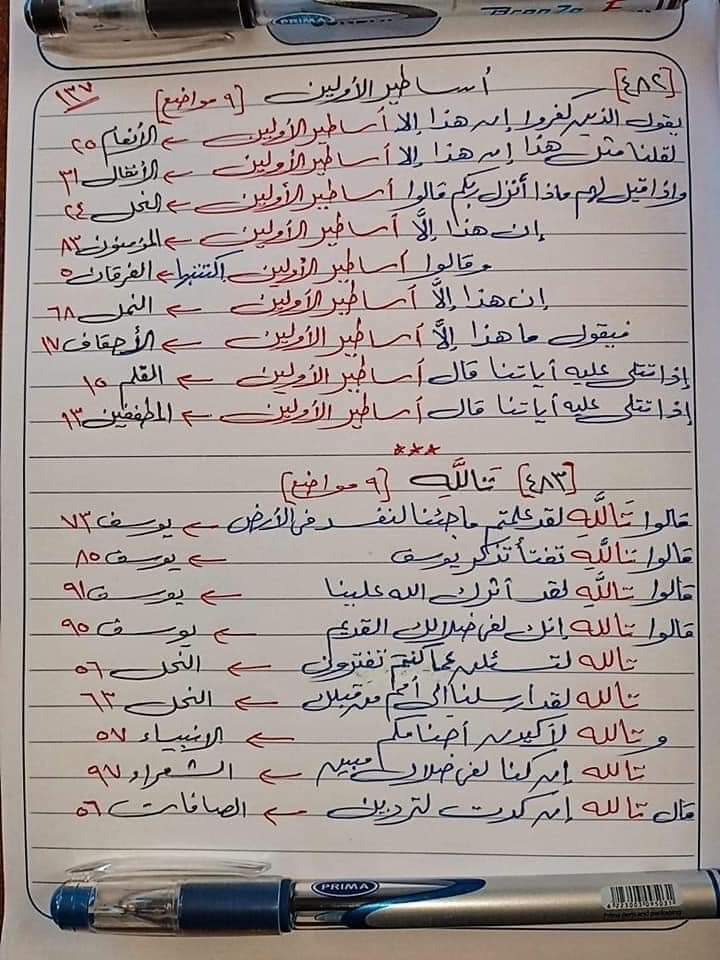 PRIMA
Bronze
[٤٨٢] أساطير الأولين [٩ مواضع] ١٣٧
يقول الذين كفروا إن هذا إلا أساطير الأولين ← الأنعام ٢٥
لقلنا مثل هذا إن هذا إلا أساطير الأولين ← الأنفال ٣١
وإذا قيل لهم ماذا أنزل ربكم قالوا أساطير الأولين ← النحل ٢٤
إن هذا إلَّا أساطير الأولين ← المؤمنون ٨٣
وقالوا أساطير الأولين إكتتبها ← الفرقان ٥
إن هذا إلَّا أساطير الأولين ← النمل ٦٨
فيقول ما هذا إلَّا أساطير الأولين ← الأحقاف ١٧
إذا تتلى عليه أياتنا قال أساطير الأولين ← القلم ١٥
إذا تتلى عليه أياتنا قال أساطير الأولين ← المطففين ١٣
***
[٤٨٣] تَاللَّهِ [٩ مواضع]
قالوا تَاللَّهِ لقد علمتم ما جئنا لنفسد فى الأرض ← يوسف ٧٣
قالوا تاللَّهِ تفتأ تذكر يوسف ← يوسف ٨٥
قالوا تاللَّهِ لقد أثرك الله علينا ← يوسف ٩١
قالوا تالله إنك لفى ضلالك القديم ← يوسف ٩٥
تالله لتسئلن عما كنتم تفترون ← النحل ٥٦
تالله لقد ارسلنا إلى أمم من قبلك ← النحل ٦٣
وتالله لأكيدن أصنامكم ← الانبياء ٥٧
تالله إن كنا لفى ضلال مبين ← الشعراء ٩٧
قال تالله إن كدت لتردين ← الصافات ٥٦
PRIMA
6 223003 095031